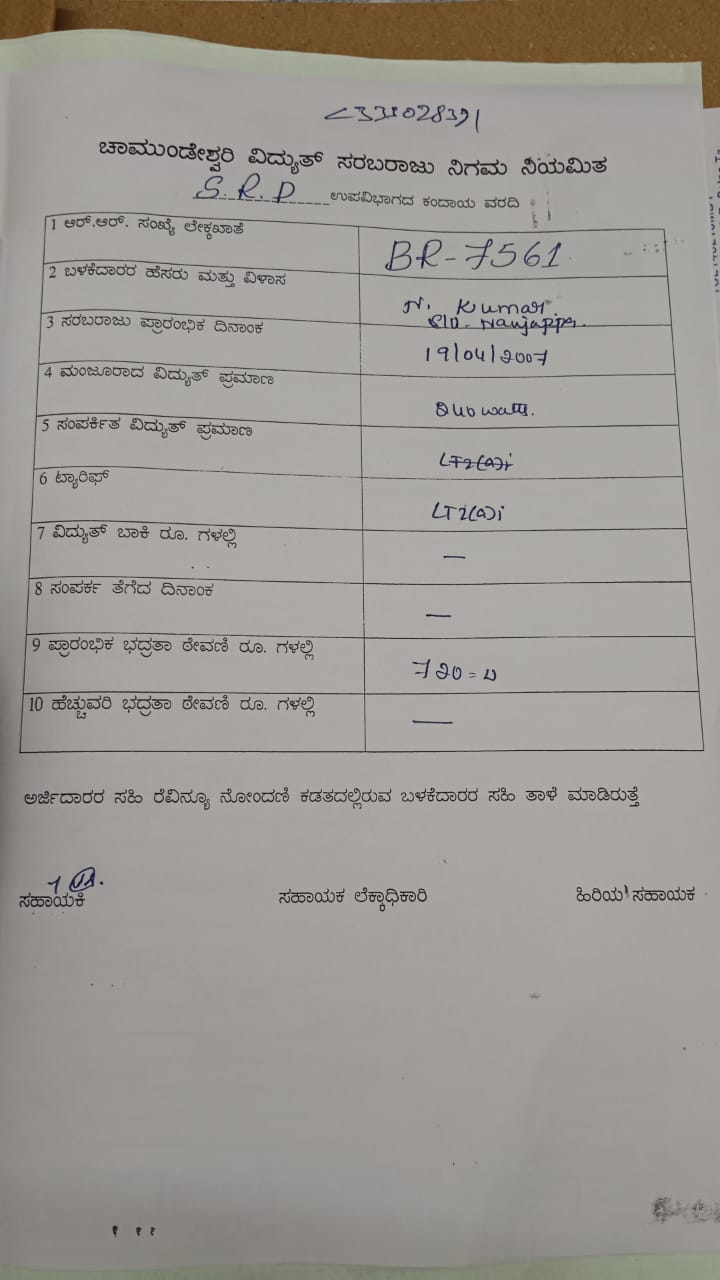 ಚಾಮುಂಡೇಶ್ವರಿ ವಿದ್ಯುತ್ ಸರಬರಾಜು ನಿಗಮ ನಿಯಮಿತ
S. R. P ಉಪವಿಭಾಗದ ಕಂದಾಯ ವರದಿ
1 ಆರ್.ಆರ್. ಸಂಖ್ಯೆ ಲೇಕ್ಕಖಾತೆ BR-7561
2 ಬಳಕೆದಾರರ ಹೆಸರು ಮತ್ತು ವಿಳಾಸ N. Kumar
S/o. Nanjappa.
3 ಸರಬರಾಜು ಪ್ರಾರಂಭಿಕ ದಿನಾಂಕ 19/04/2007
4 ಮಂಜೂರಾದ ವಿದ್ಯುತ್ ಪ್ರಮಾಣ watts.
5 ಸಂಪರ್ಕಿತ ವಿದ್ಯುತ್ ಪ್ರಮಾಣ LT2(a)i
6 ಟ್ಯಾರಿಫ್ LT2(a)i
7 ವಿದ್ಯುತ್ ಬಾಕಿ ರೂ. ಗಳಲ್ಲಿ —
8 ಸಂಪರ್ಕ ತೆಗೆದ ದಿನಾಂಕ —
9 ಪ್ರಾರಂಭಿಕ ಭದ್ರತಾ ಠೇವಣಿ ರೂ. ಗಳಲ್ಲಿ 720=
10 ಹೆಚ್ಚುವರಿ ಭದ್ರತಾ ಠೇವಣಿ ರೂ. ಗಳಲ್ಲಿ —
ಅರ್ಜಿದಾರರ ಸಹಿ ರೆವಿನ್ಯೂ ನೋಂದಣಿ ಕಡತದಲ್ಲಿರುವ ಬಳಕೆದಾರರ ಸಹಿ ತಾಳೆ ಮಾಡಿರುತ್ತೆ
ಸಹಾಯಕಿ ಸಹಾಯಕ ಲೆಕ್ಕಾಧಿಕಾರಿ ಹಿರಿಯ ಸಹಾಯಕ